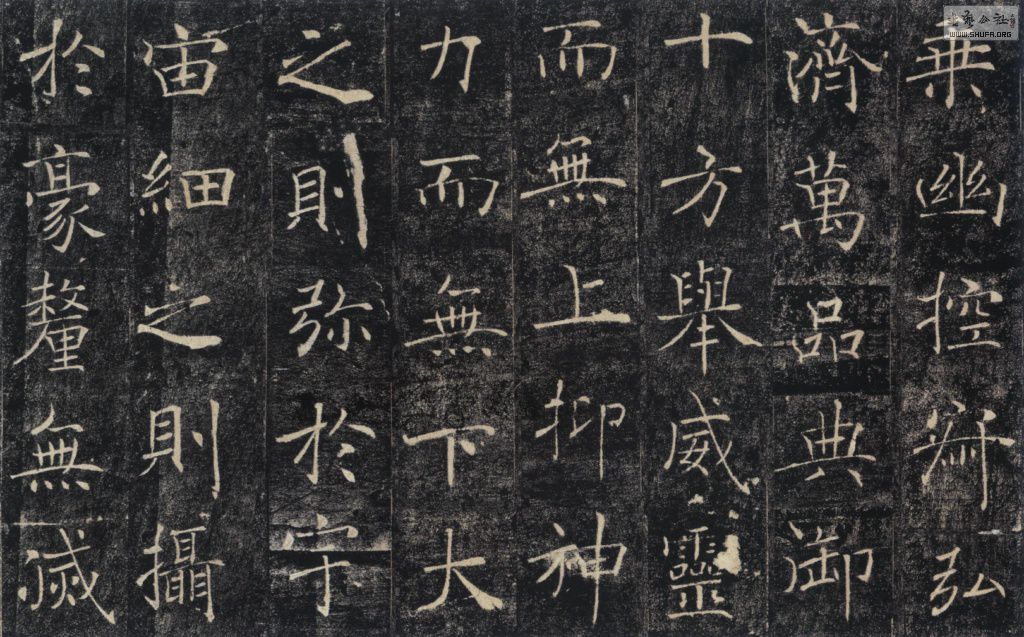 乗幽控寂弘
濟萬品典御
十方舉威靈
而無上抑神
力而無下大
之則弥於宇
宙細之則攝
於豪釐無滅
WWW.SHUFA.ORG